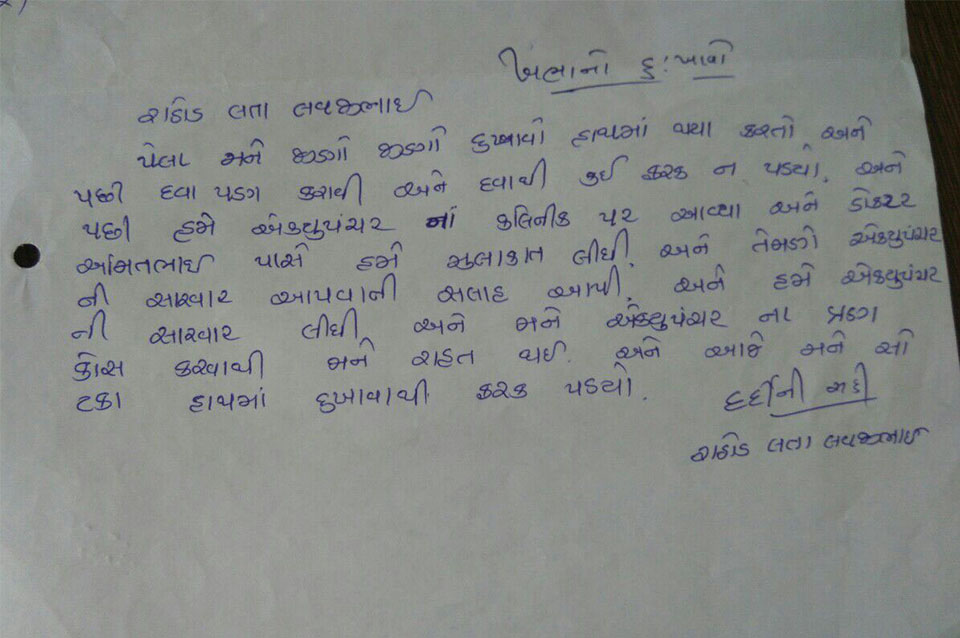 ખંભાનો દુઃખાવો
રાઠોડ લતા લવજીભાઈ
પેલા મને જીણો જીણો દુખાવો હાથમાં થયા કરતો અને
પછી દવા પણ કરાવી અને દવાથી કઈ ફરક ન પડ્યો. અને
પછી હમે એક્યુપંચર નાં કલિનીક પર આવ્યા અને ડોકટર
અમિતભાઈ પાસે હમે મુલાકાત લીધી. અને તેમણે એક્યુપંચર
ની સારવાર આપવાની સલાહ આપી. અને હમે એક્યુપંચર
ની સારવાર લીધી અને મને એક્યુપંચર ના ત્રણ
કોસ કરવાથી મને રાહત થઈ. અને આજે મને સો
ટકા હાથમાં દુખાવાથી ફરક પડયો.
દર્દીની સહી
રાઠોડ લતા લવજીભાઈ